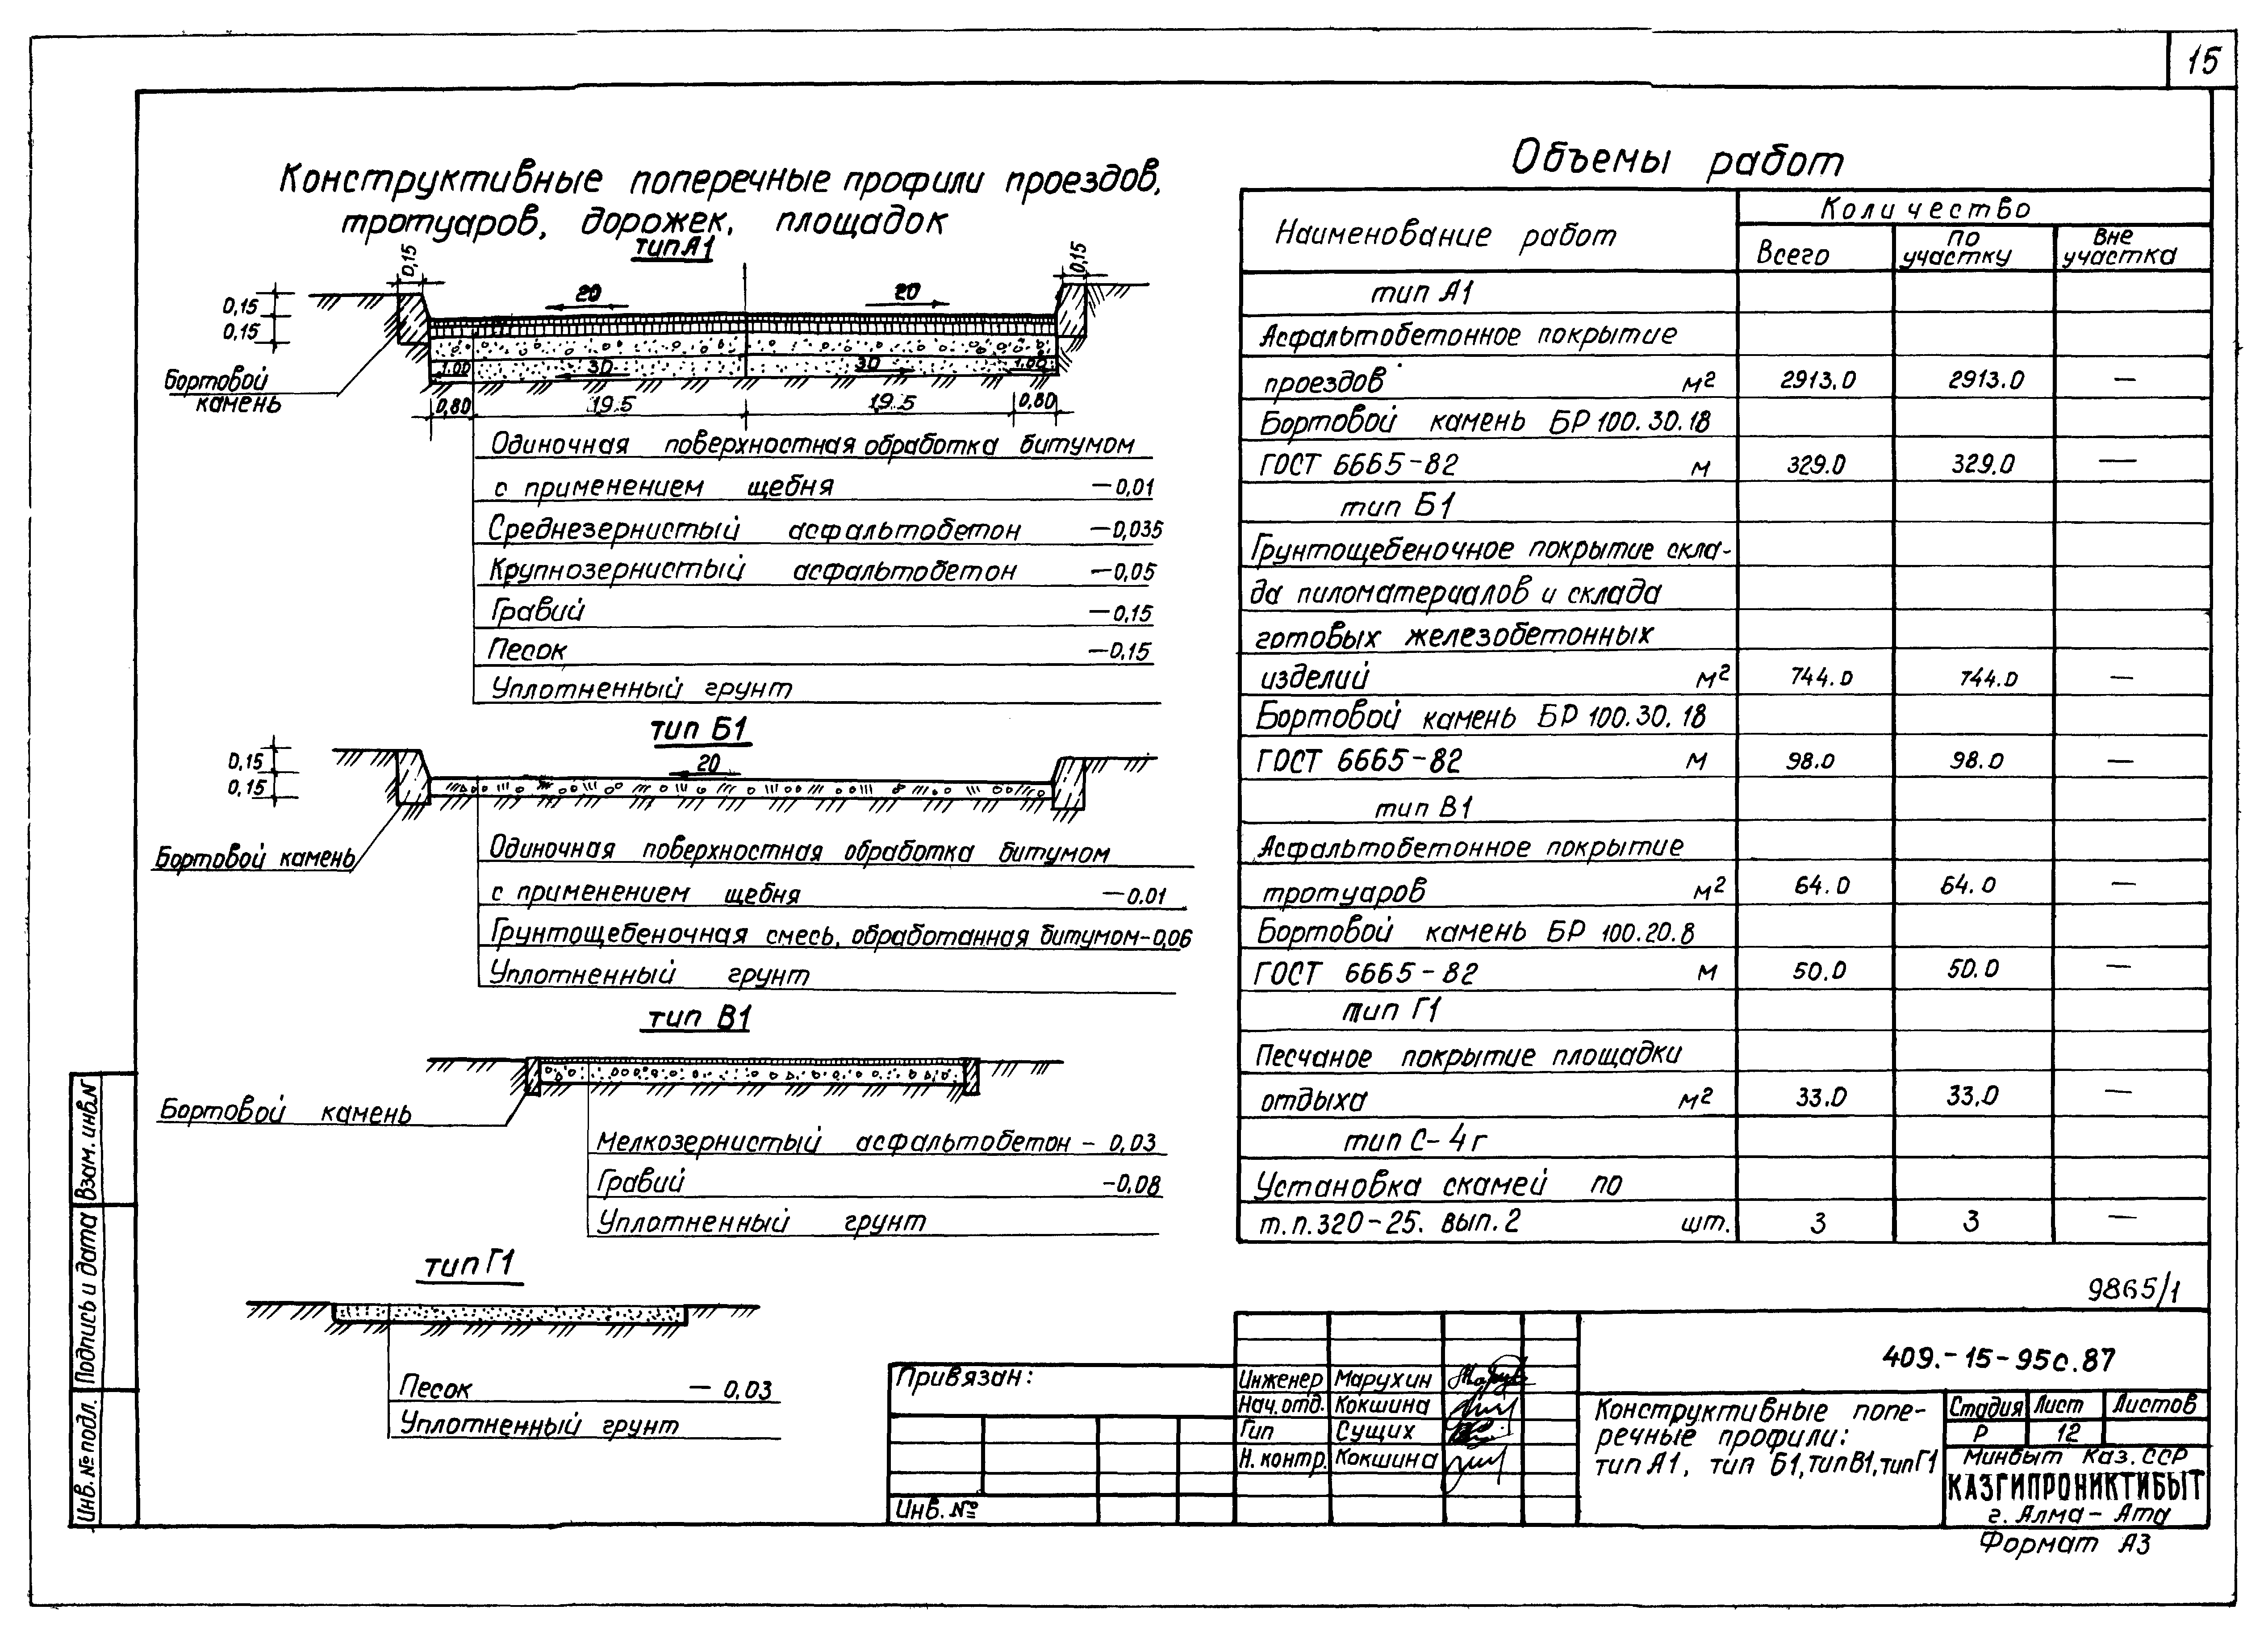 15
Конструктивные поперечные профили проездов,
тротуаров, дорожек, площадок
тип А1
0,15
0,15
0,15
0,15
20
20
1.00
30
30
1.00
Бортовой
камень
0,80
19.5
19.5
0,80
Одиночная поверхностная обработка битумом
с применением щебня —0,01
Среднезернистый асфальтобетон —0,035
Крупнозернистый асфальтобетон —0,05
Гравий —0,15
Песок —0,15
Уплотненный грунт
тип Б1
0,15
0,15
20
Бортовой камень
Одиночная поверхностная обработка битумом
с применением щебня —0.01
Грунтощебеночная смесь, обработанная битумом-0,06
Уплотненный грунт
тип В1
Бортовой камень
Мелкозернистый асфальтобетон - 0,03
Гравий -0,08
Уплотненный грунт
тип Г1
Песок — 0,03
Уплотненный грунт
Объемы работ
Наименование работ
Количество
Всего
по
участку
Вне
участка
тип А1
Асфальтобетонное покрытие
проездов м² 2913.0 2913.0 —
Бортовой камень БР 100.30.18
ГОСТ 6665-82 м 329.0 329.0 —
тип Б1
Грунтощебеночное покрытие скла-
да пиломатериалов и склада
готовых железобетонных
изделий м² 744.0 744.0 —
Бортовой камень БР 100.30.18
ГОСТ 6665-82 м 98.0 98.0 —
тип В1
Асфальтобетонное покрытие
тротуаров м² 64.0 64.0 —
Бортовой камень БР 100.20.8
ГОСТ 6665-82 м 50.0 50.0 —
тип Г1
Песчаное покрытие площадки
отдыха м² 33.0 33.0 —
тип С-4г
Установка скамей по
т.п.320-25. вып.2 шт. 3 3 —
9865/1
Взам. инв.N
Подпись и дата
Инв. № подл.
Привязан:
Инв. №
Инженер Марухин
Нач. отд. Кокшина
Гип Сущих
Н. контр. Кокшина
409.-15-95с.87
Конструктивные попе-
речные профили:
тип А1, тип Б1, тип В1, тип Г1
Стадия Лист Листов
Р 12
Минбыт Каз.ССР
КАЗГИПРОНИКТИБЫТ
г. Алма-Ата
Формат А3